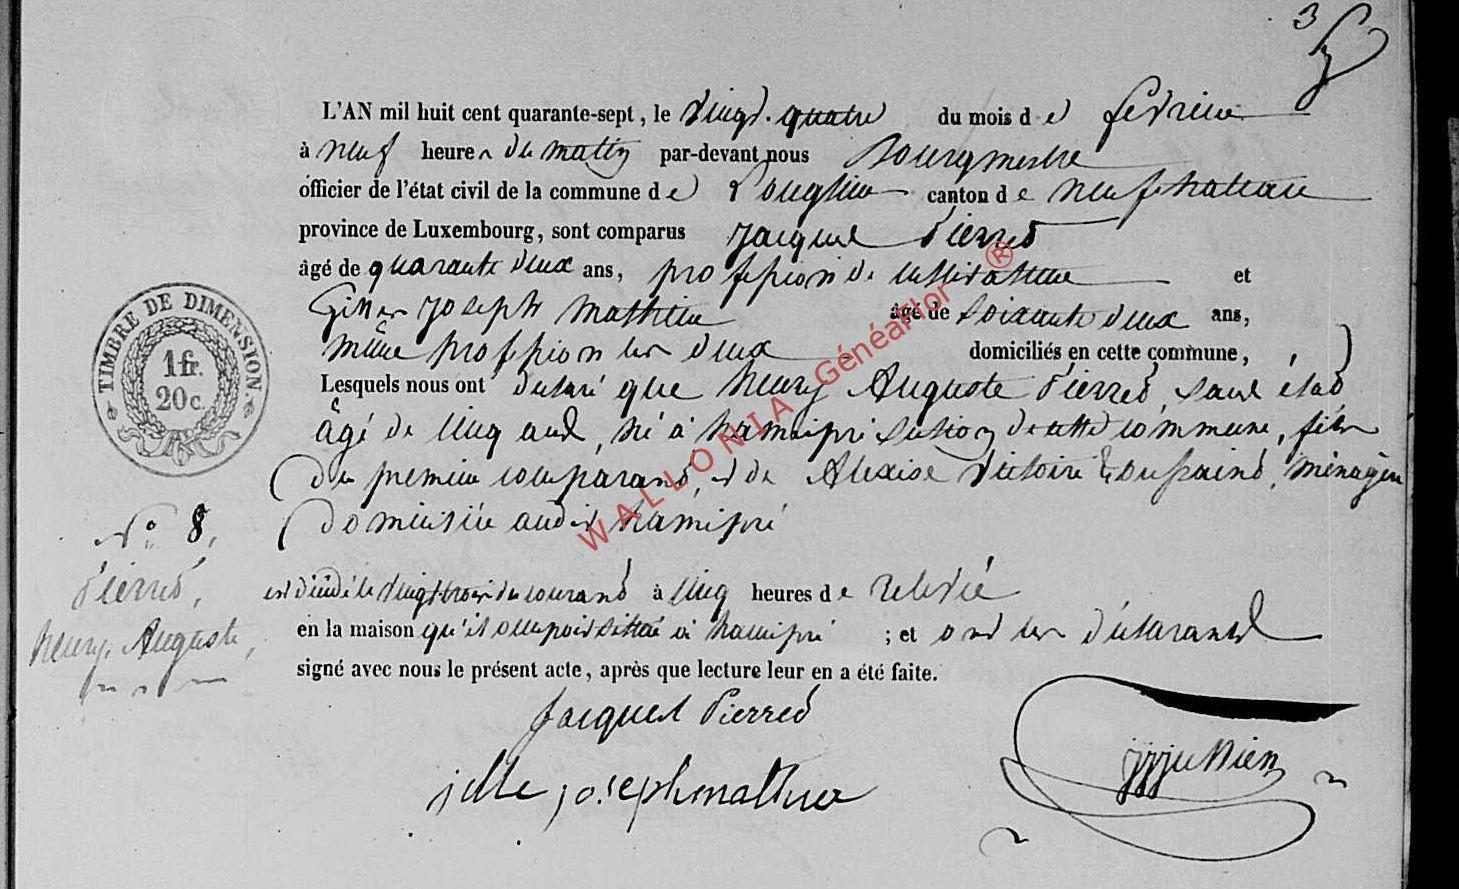 3
L'AN mil huit cent quarante-sept, le vingt-quatre du mois de fevrier
à neuf heures du matin par-devant nous Bourgmestre
officier de l'état civil de la commune de Longlier canton de neufchateau
province de Luxembourg, sont comparus Jacques Pierret
âgé de quarante deux ans, profession de cultivateur et
Gilles Joseph Mathieu âgé de soixante deux ans,
même profession les deux domiciliés en cette commune,
Lesquels nous ont déclaré que henry Auguste Pierret, sans état
âgé de cinq ans, né à hamipré section de cette commune, fils
du premier comparant, et de Victoire menagère
domiciliée audit hamipré
est décédé le vingt trois du courant à cinq heures de relevée
en la maison qu'il occupoit située à hamipré ; et ont les déclarants
signé avec nous le présent acte, après que lecture leur en a été faite.
Jacques Pierret
jille joseph mathieu
TIMBRE DE DIMENSION.
1 fr.
20 c.
N° 8,
Pierret,
henry Auguste,
WALLONIA GénéaFlor ®